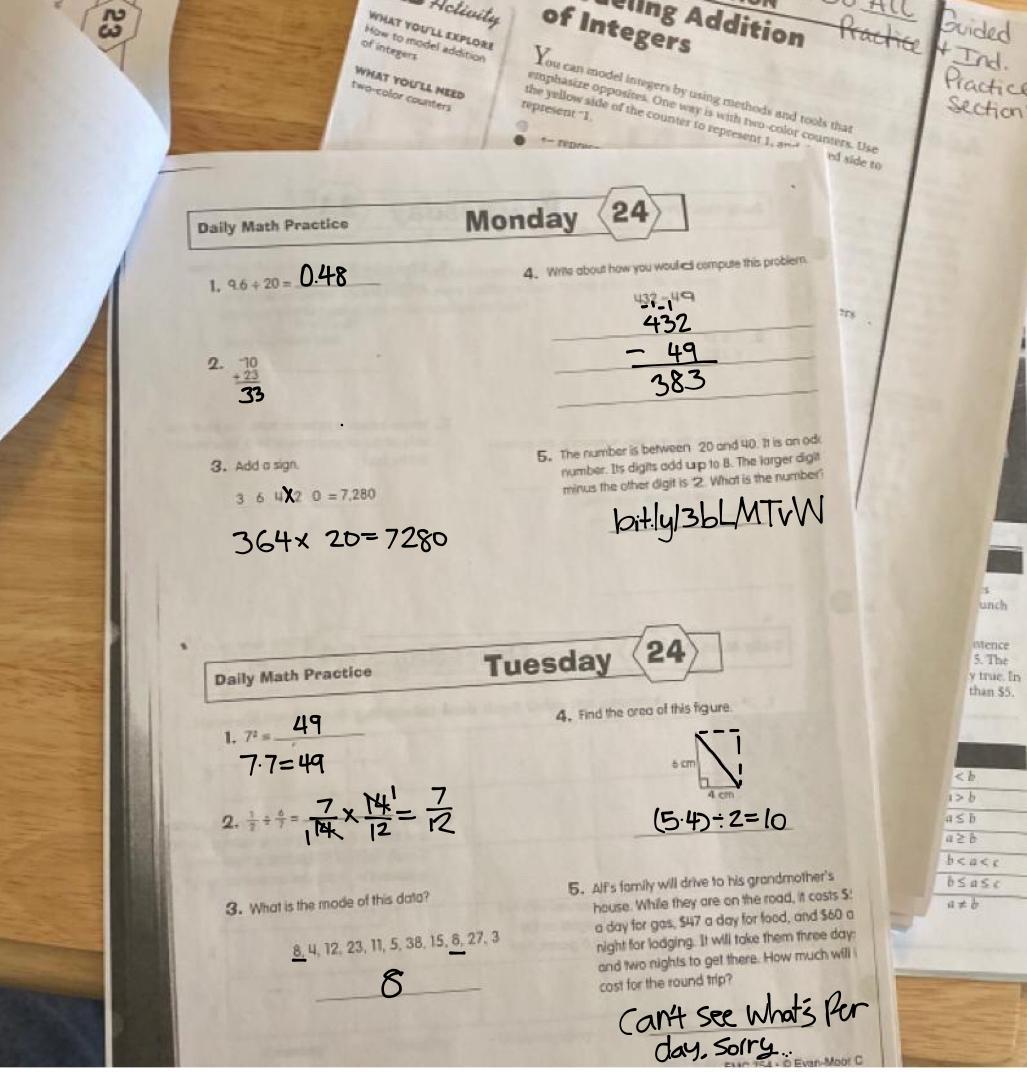 23
Activity
WHAT YOU'LL EXPLORE
How to model addition
of integers
WHAT YOU'LL NEED
two-color counters
Addition
of Integers
You can model integers by using methods and tools that
emphasize opposites. One way is with two-color counters. Use
the yellow side of the counter to represent 1, and ed side to
represent -1.
ALL
Practice
Guided
+ Ind.
Practice
Section
Daily Math Practice Monday 24
1. 9.6 ÷ 20 = 0.48
2. -10
+ 23
33
3. Add a sign.
3 6 4 x 2 0 = 7,280
364 x 20 = 7280
4. Write about how you would compute this problem.
432 - 49
-1 -1
432
- 49
383
5. The number is between 20 and 40. It is an od
number. Its digits add up to 8. The larger digit
minus the other digit is 2. What is the number
bit.ly/3bLMTvW
Daily Math Practice Tuesday 24
1. 7² = 49
7·7=49
2. 1/2 ÷ 6/7 = 7/14 x 14/12 = 7/12
1 1
3. What is the mode of this data?
8, 4, 12, 23, 11, 5, 38, 15, 8, 27, 3
8
4. Find the area of this figure.
6 cm
4 cm
(5·4)÷2=10
5. Alf's family will drive to his grandmother's
house. While they are on the road, it costs $
a day for gas, $47 a day for food, and $60 a
night for lodging. It will take them three day
and two nights to get there. How much will i
cost for the round trip?
Can't see what's Per
day. Sorry..
© Evan-Moor C
unch
ntence
5. The
y true. In
than $5.
< b
> b
a ≤ b
a ≥ b
b < a < c
b ≤ a ≤ c
a ≠ b